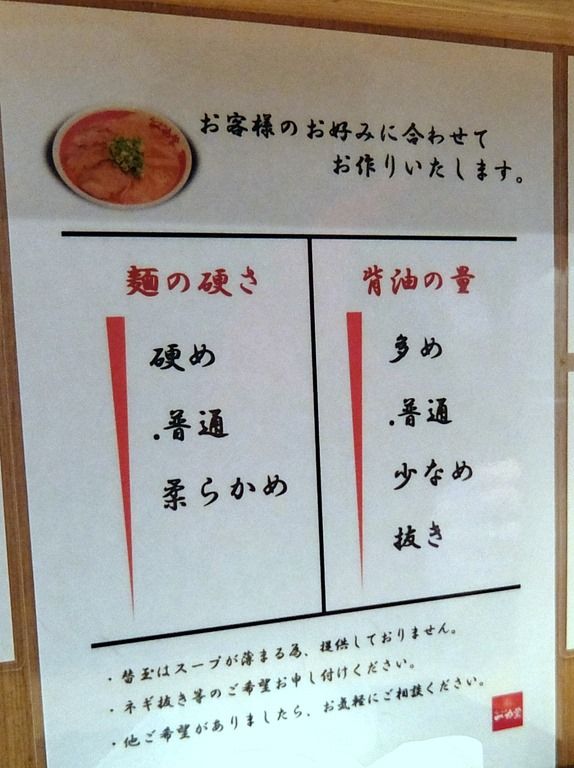 お客様のお好みに合わせて
お作りいたします。
麺の硬さ
硬め
.普通
柔らかめ
背油の量
多め
.普通
少なめ
抜き
・替玉はスープが薄まる為、提供しておりません。
・ネギ抜き等のご希望お申し付けください。
・他ご希望がありましたら、お気軽にご相談ください。